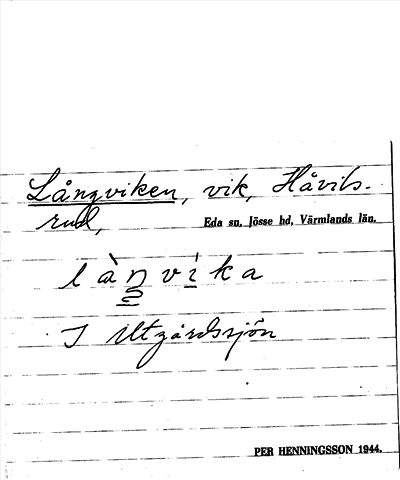 Långviken, vik, Håvils-
rud,
Eda sn, Jösse hd, Värmlands län.
làŋvika
I Utgårdssjön
PER HENNINGSSON 1944.